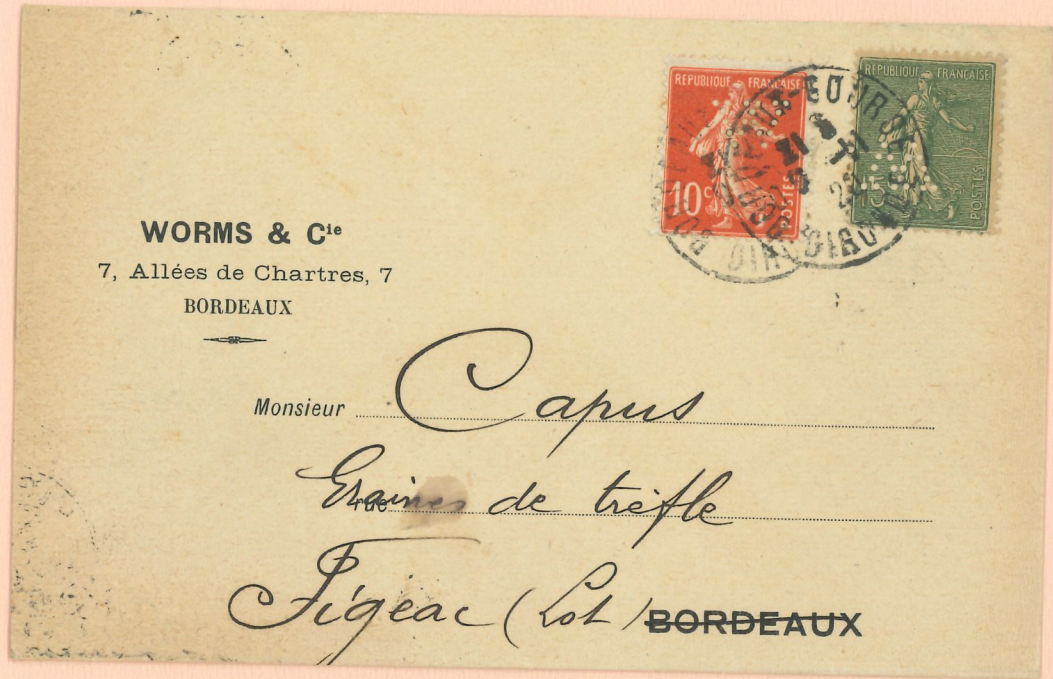 REPUBLIQUE FRANCAISE
10c
POSTES
REPUBLIQUE FRANCAISE
15c
POSTES
WORMS & Cie
7, Allées de Chartres, 7
BORDEAUX
Monsieur Capus
rue Graines de trèfle
Figeac (Lot) BORDEAUX